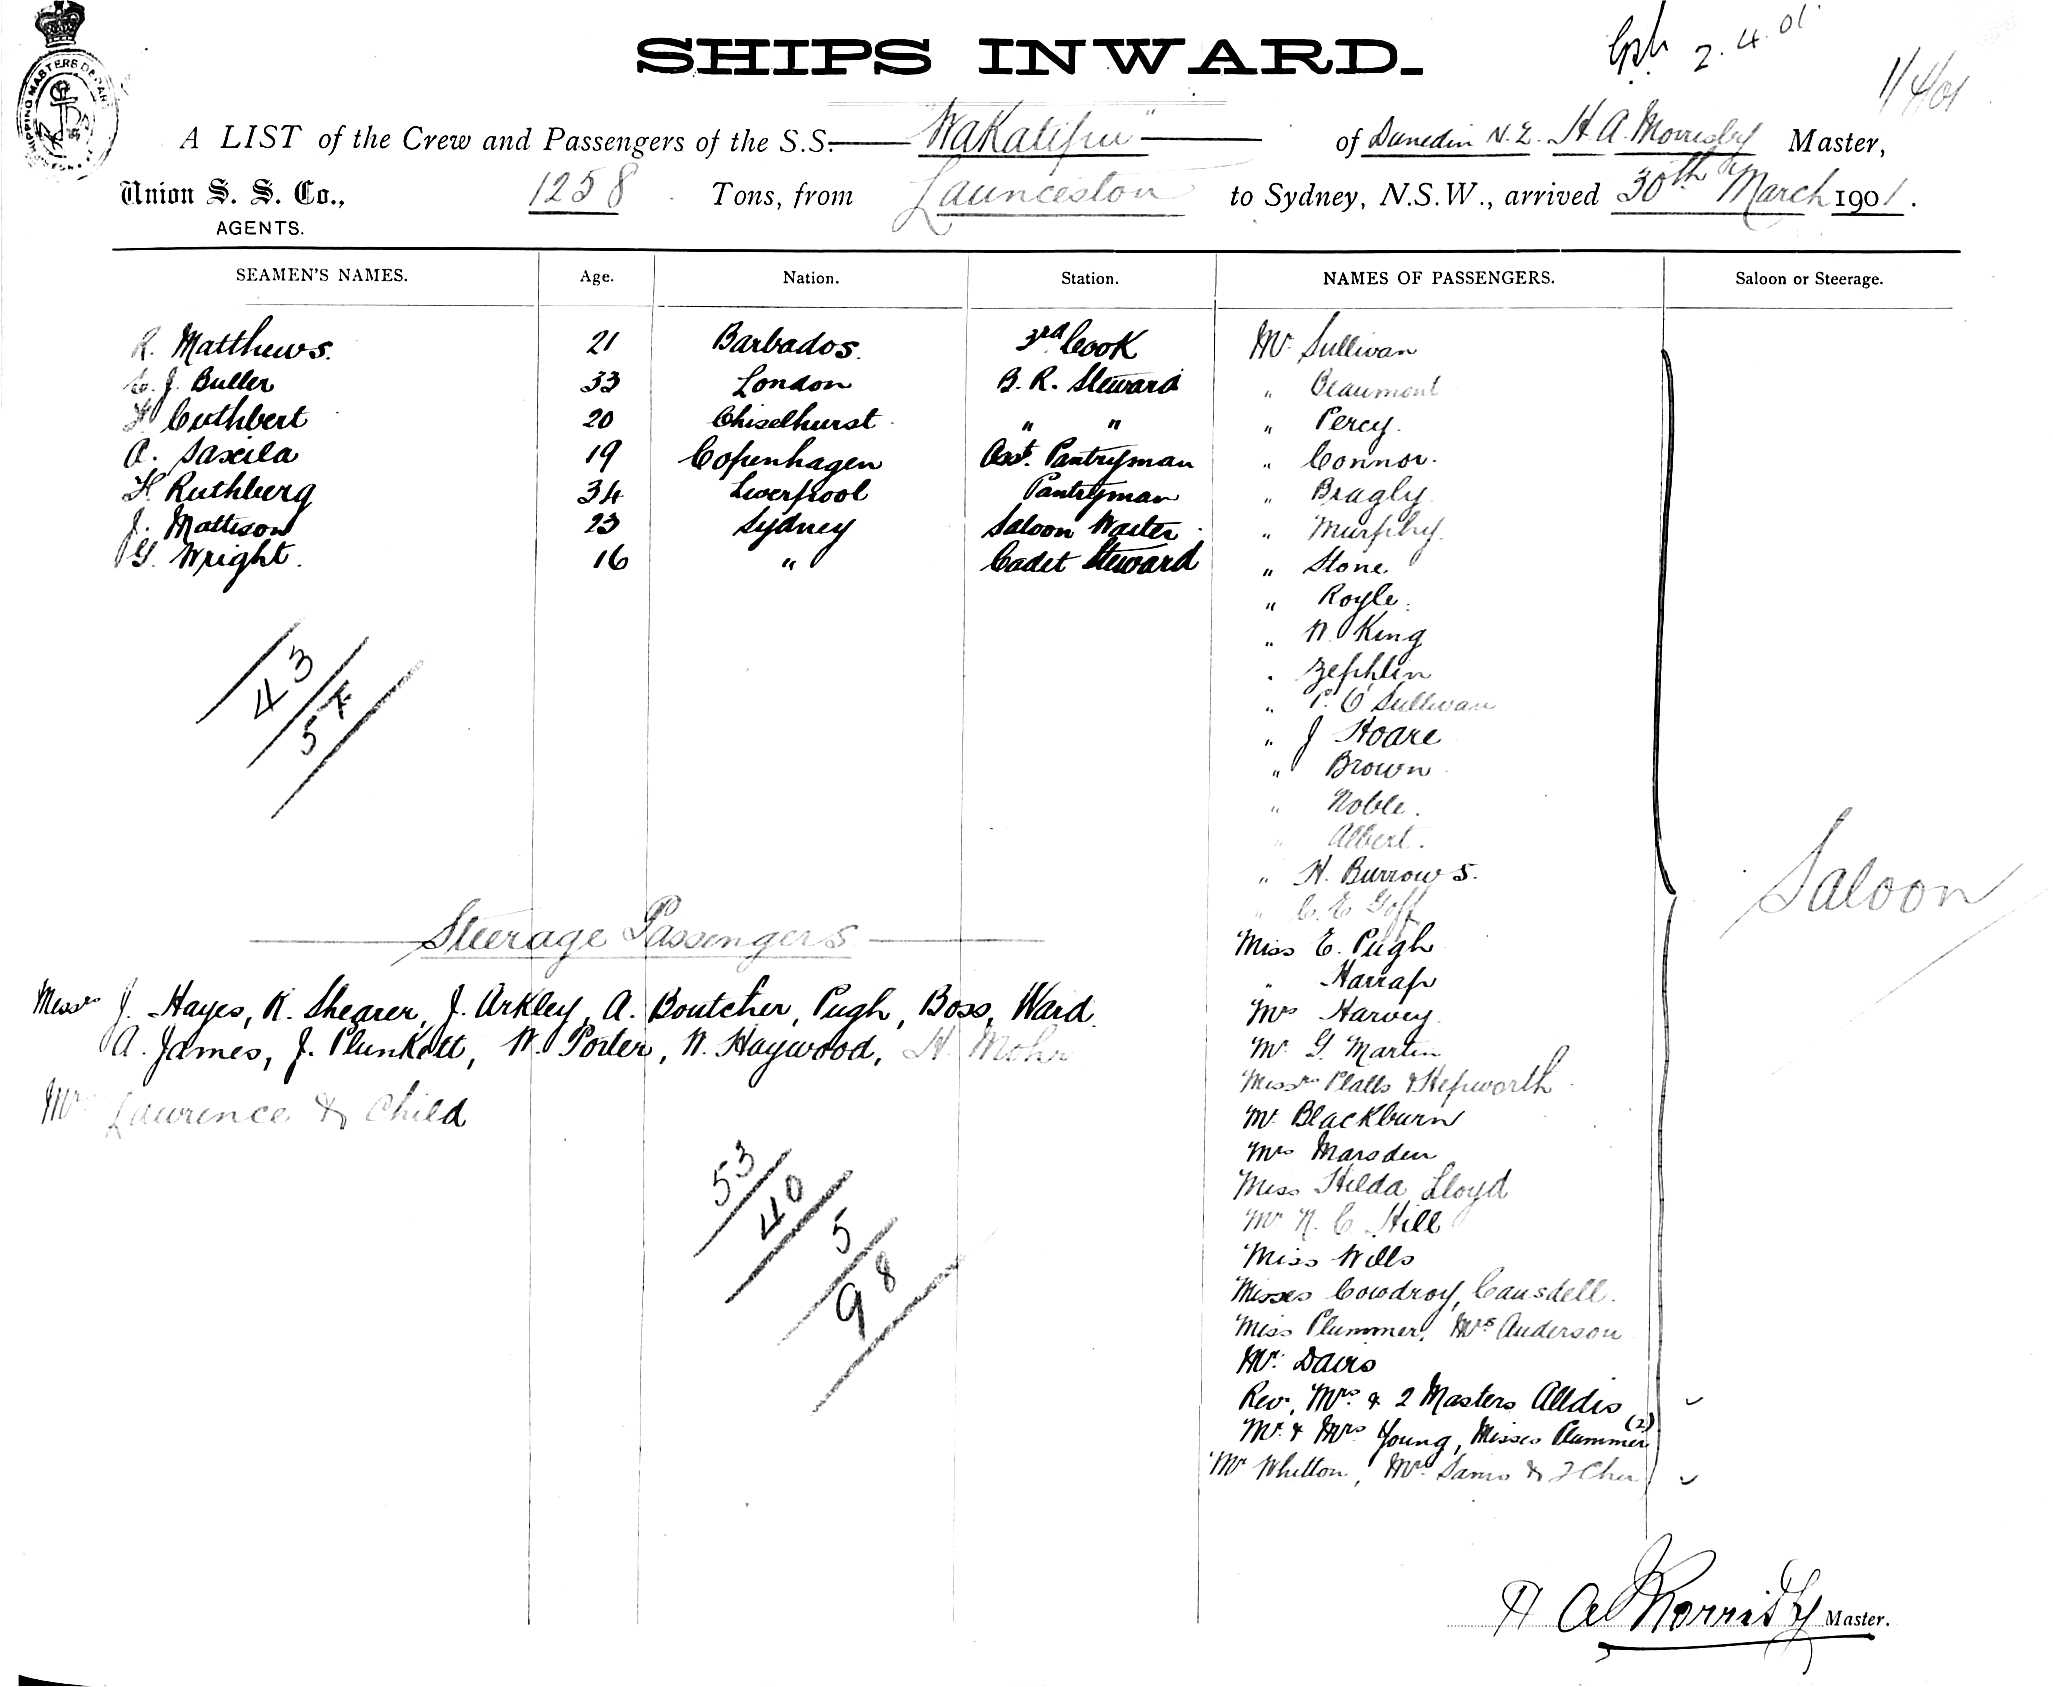 SHIPS INWARD.
2.4.01
A LIST of the Crew and Passengers of the S.S. "Wakatipu" of Dunedin N.Z. H. A. Morrisby Master,
Union S. S. Co., 1258 Tons, from Launceston to Sydney, N.S.W., arrived 30th March 1901.
AGENTS.
SEAMEN'S NAMES. Age. Nation. Station. NAMES OF PASSENGERS. Saloon or Steerage.
R. Matthews. 21 Barbados. 3rd Cook
E. J. Buller 33 London B. R. Steward
F. Cuthbert 20 Chiselhurst " "
A. Saxeila 19 Copenhagen Asst. Pantryman
H. Ruthberg 34 Liverpool Pantryman
J. Mattison 23 Sydney Saloon Waiter
G. Wright. 16 " Cadet Steward
43
54
Mr Sullivan
" Beaumont
" Percy.
" Connor.
" Bragly.
" Murphy.
" Stone.
" Royle.
" W. King
" Zephlin
" P. O'Sullivan
" J Hoare
" Brown
" Noble.
" Albert.
" H. Burrows.
" C. E. Goff
Miss E. Pugh
" Harrap
Mrs Harvey.
Mr G. Martin
Messrs Platts & Hepworth
Mr Blackburn
Mrs Marsden
Miss Hilda Lloyd
Mr N. C. Hill
Miss Wells
Misses Cowdroy, Causdell.
Miss Plummer, Mrs Anderson
Mr. Davis
Rev, Mrs. & 2 Masters Alldis
Mr. & Mrs Young, Misses Plummer (2)
Mr Whitton, Mrs Sams & 2 Chn
Saloon
Steerage Passengers
Messrs J. Hayes, R. Shearer, J. Arkley, A. Boutcher, Pugh, Boss, Ward.
A. James, J. Plunkett, W. Porter, W. Haywood, H. Mohr
Mrs Lawrence & Child
53
40
5
98
H A Morrisby Master.